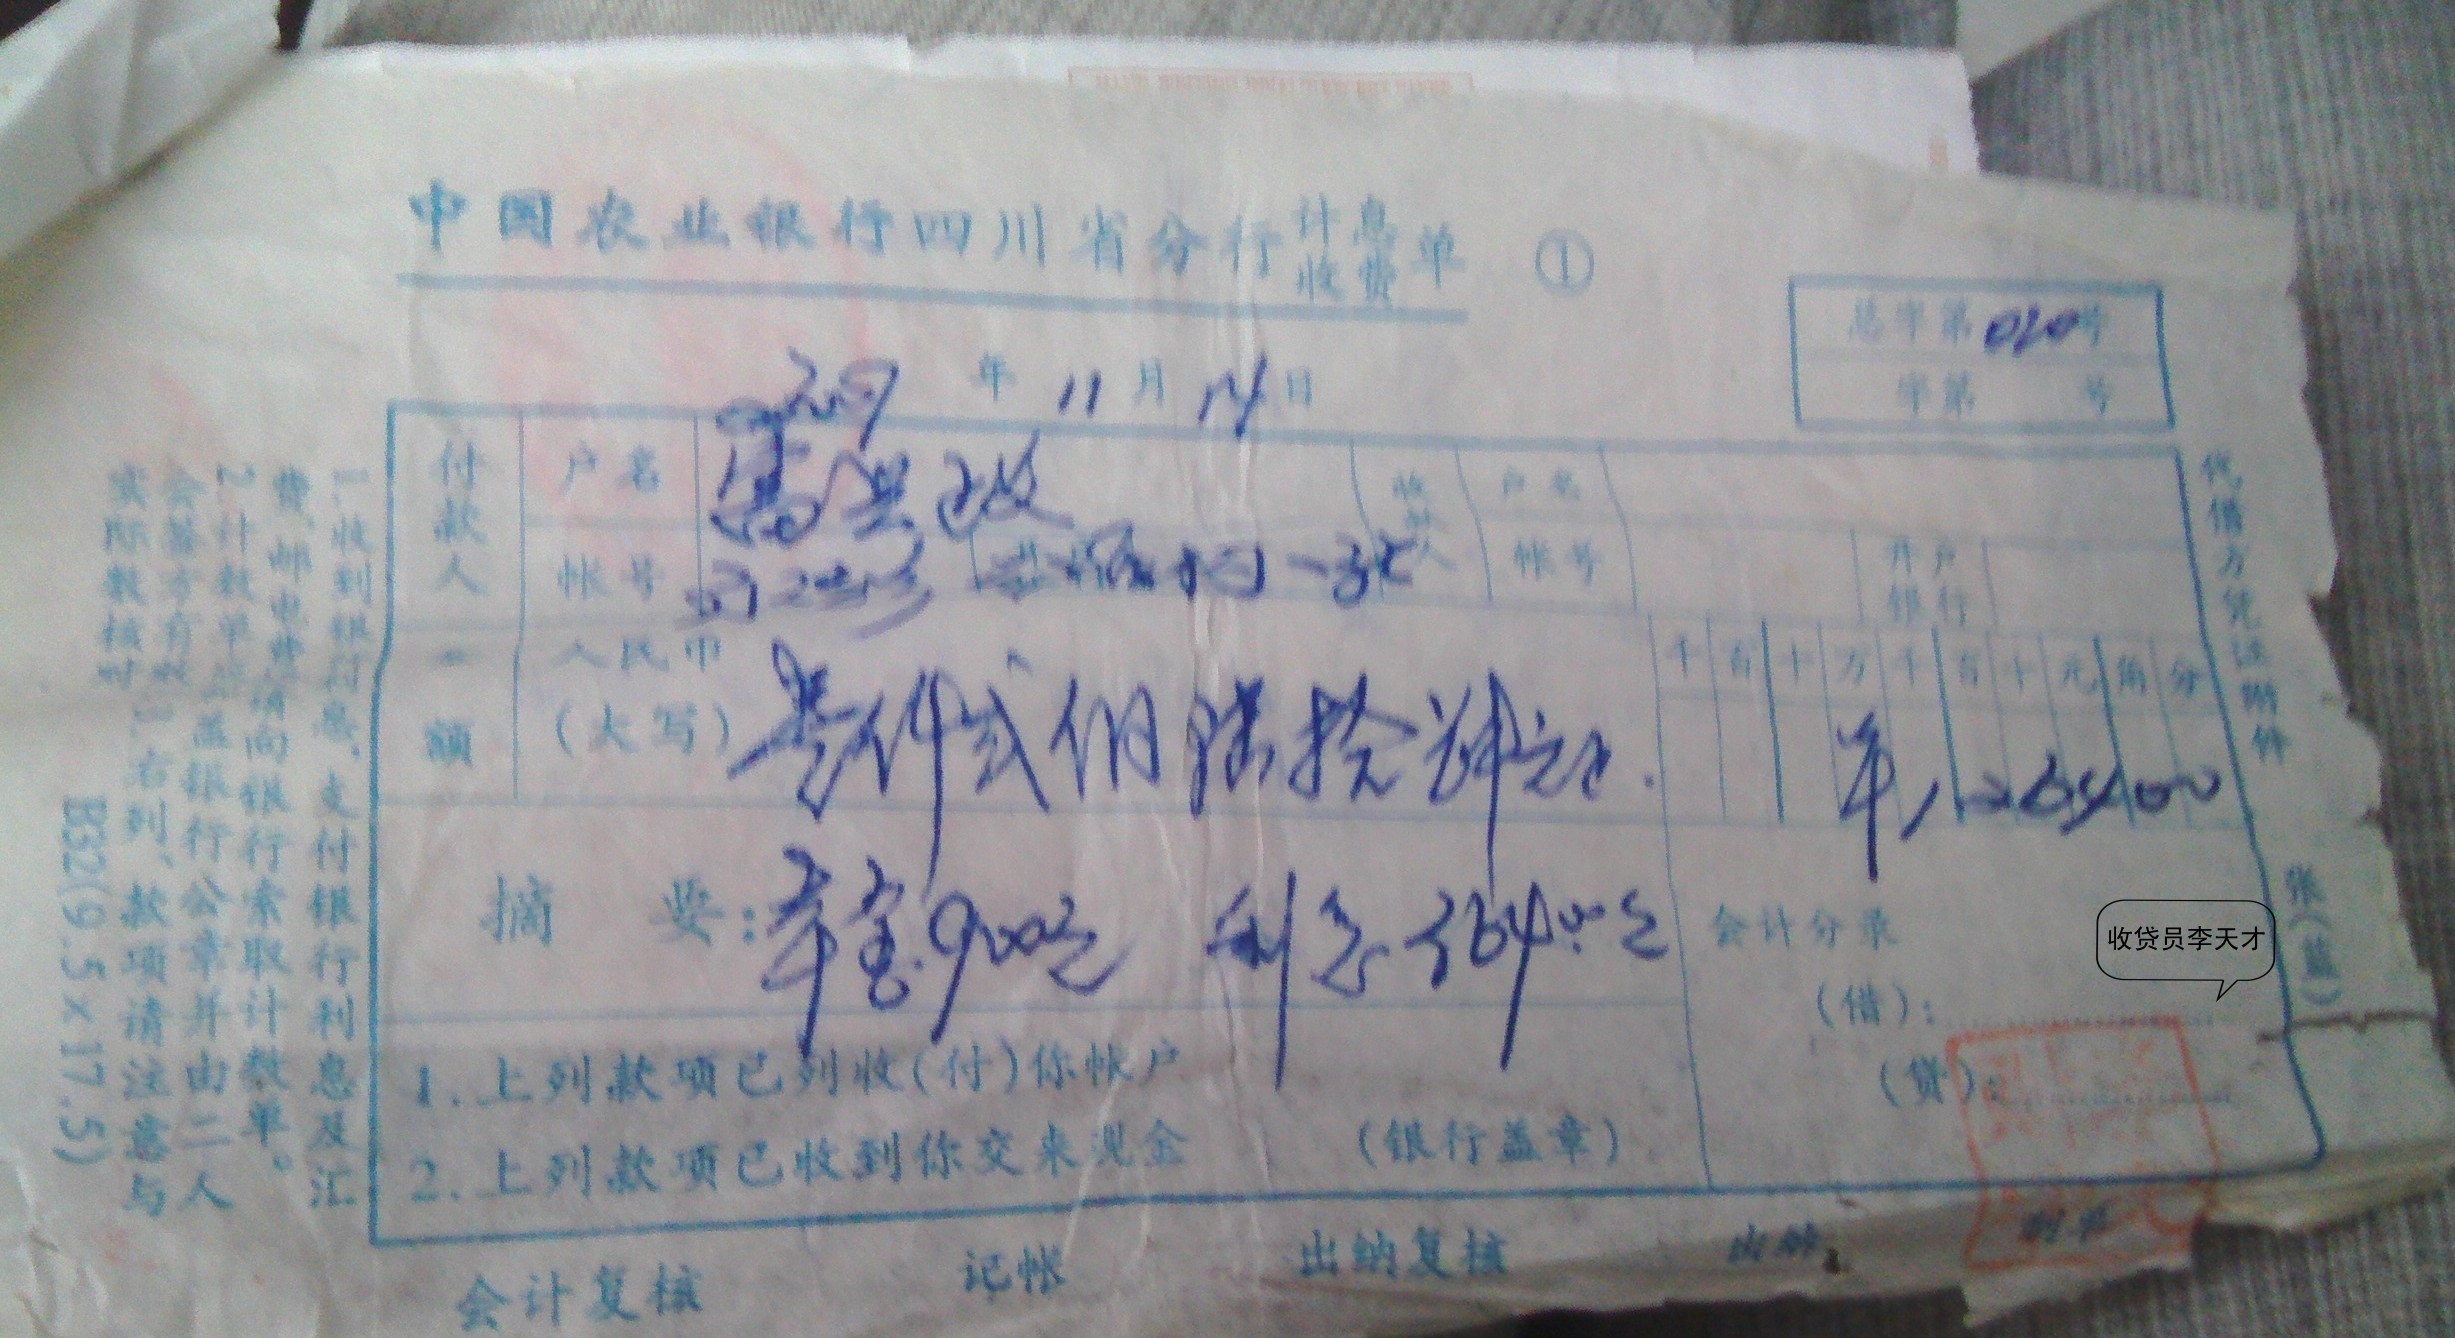 中国农业银行四川省分行计息收费单 ①
总字第020号
字第 号
年 11 月 14 日
付款人
户名
帐号
收款人
户名
帐号
开户银行
额
人民币
(大写)
壹仟贰佰陆拾肆元正.
千 百 十 万 千 百 十 元 角 分
1264.00
摘 要: 本金900元 利息364.00元
会计分录
(借):
(贷):
收贷员李天才
1.上列款项已列收(付)你帐户
2.上列款项已收到你交来现金
(银行盖章)
会计复核 记帐 出纳复核 出纳 制单
代借方凭证附件
张(蓝)
1.收到银行息、支付银行利息及汇
费、邮电费请向银行索取计数单。
2.计数单应盖银行公章并由二人
会签方有效。3.右列、款项请注意与
实际数核对
B32(9.5×17.5)